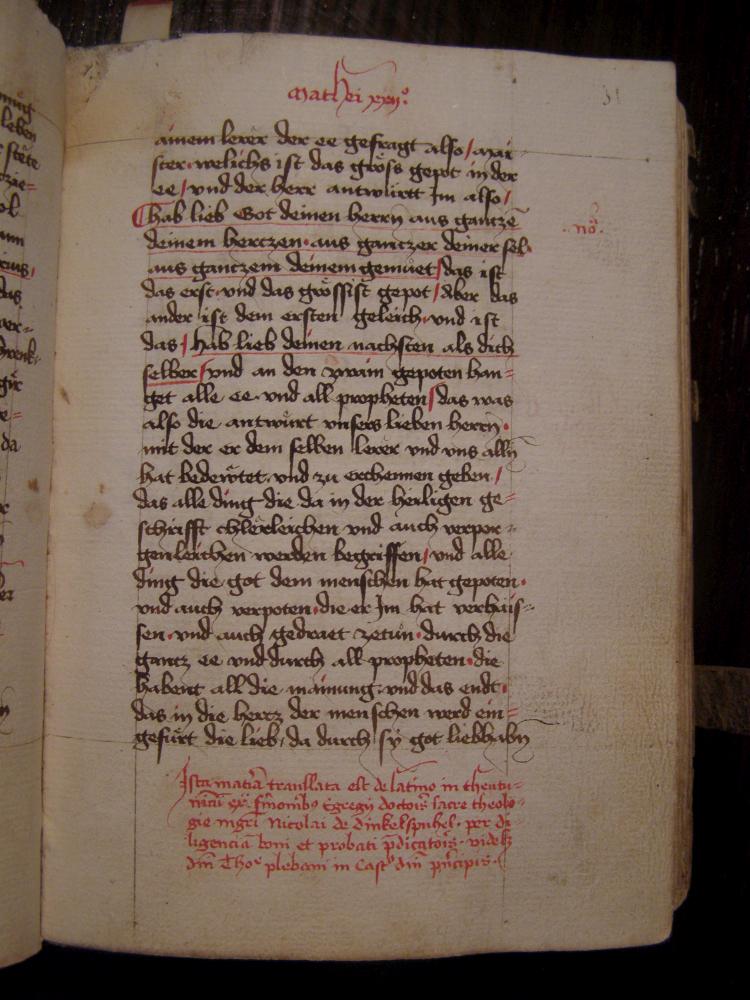 Mathei xxij°
ainem lerer der ee gefragt also / mai-
ster welichs ist das gröss gepot in der
ee / vnd der herr antwürtt Im also /
hab lieb Got deinen herrn aus gantzē
deinem herczen · aus ganczer deiner sel ·
nō
aus ganczem deinem gemüet / das ist
das erst vnd das grössist gepot / Aber das
ander ist dem ersten geleich · vnd ist
das / hab lieb deinen nachsten als dich
selber / vnd an den zwain gepoten han=
get alle ee · vnd all propheten / das was
also die antwürt vnsers lieben herrn ·
mit der er dem selben lerer vnd vns alln
hat bedewtet · vnd zu erchennen geben /
das alle ding die da in der heiligen ge=
schrifft chlerleichen vnd auch verpor=
genleichen werden begriffen / vnd alle
ding die got dem menschen hat gepoten ·
vnd auch verpoten · die er Im hat verhais=
sen · vnd auch gedraet zetün · durch die
gantz ee vnd durch all propheten · die
habent all die mainung · vnd das endt ·
das in die hertz der menschen werd ein=
gefürt die lieb · da durch sy got liebhabn
Ista matīa translata est de latino in theutu=
nicū ex sermonibꝰ Egregij doctoris sacre theolo=
gie mgri Nicolai de Dinkelspuhel · per di
ligenciā boni et probati p̄dicatoris · videlꝫ
dn̄i Tho plebani in Cast° dn̄i p̄ncipis ·